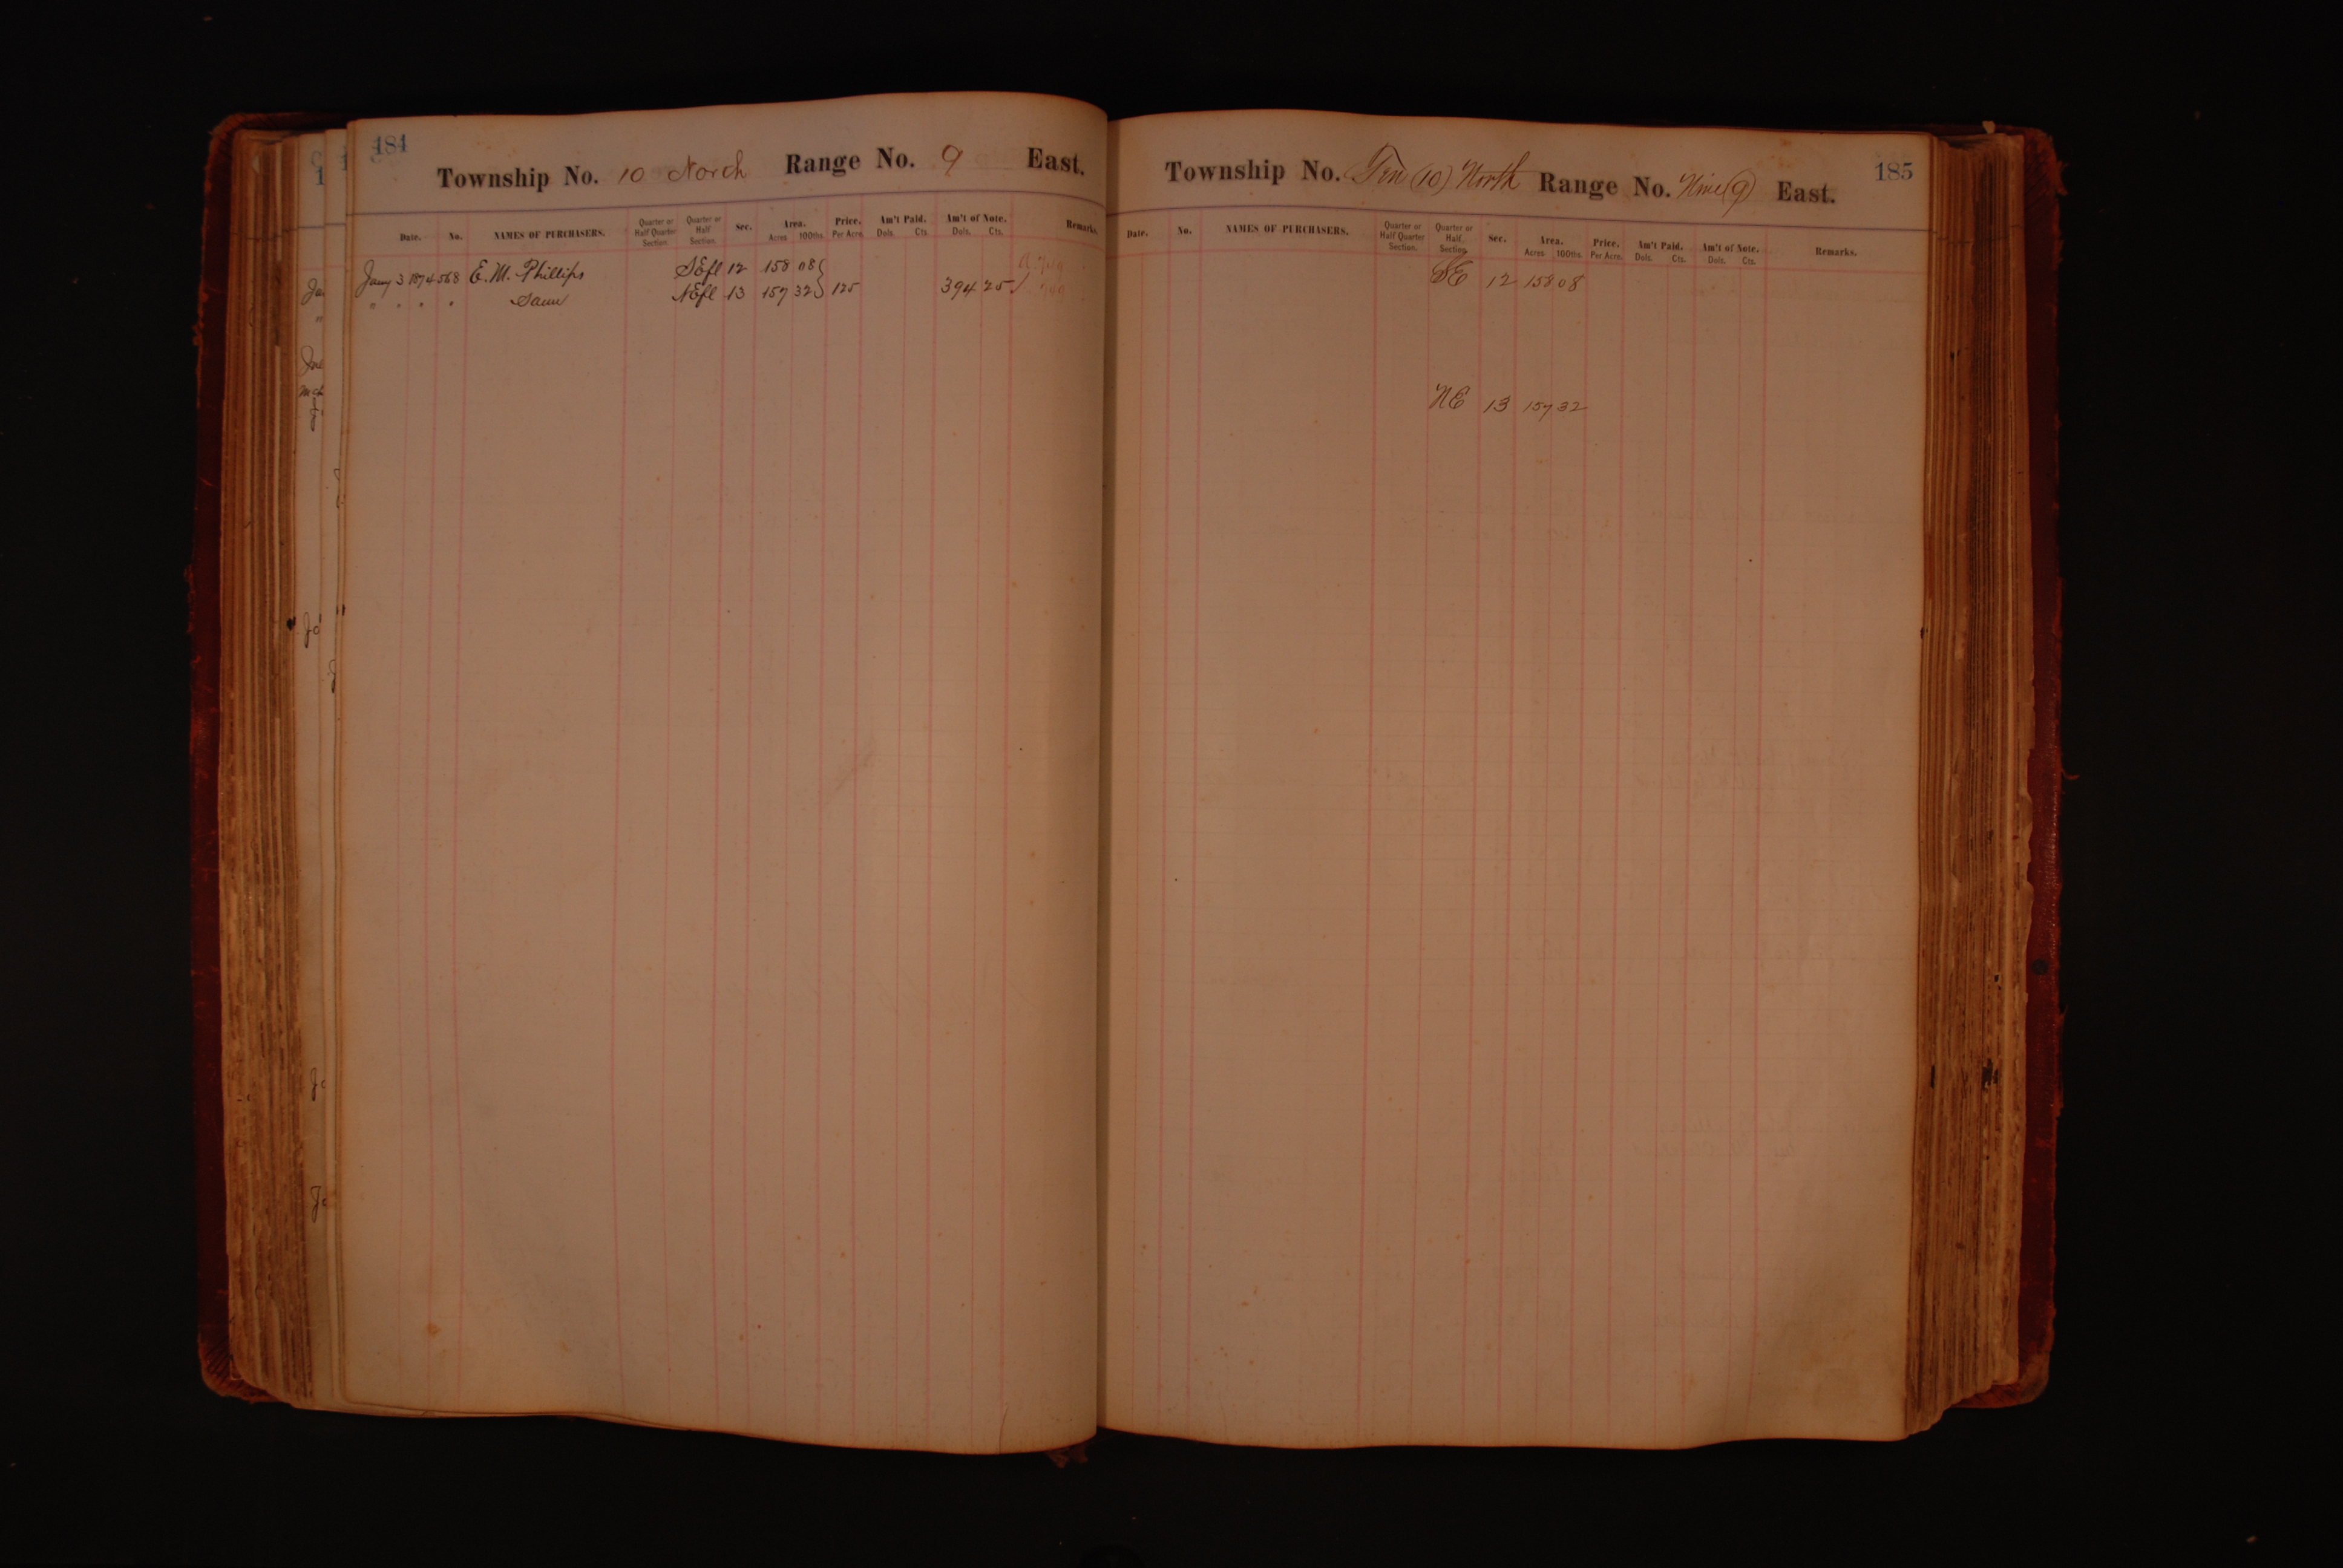 184
Township No. 10 North Range No. 9 East.
Date. No. NAMES OF PURCHASERS. Quarter or Half Quarter Section. Quarter or Half Section. Sec. Area. Acres 100ths. Price. Per Acre. Am't Paid. Dols. Cts. Am't of Note. Dols. Cts. Remarks.
Jany 3 1874 568 E. M. Phillips SEfl 12 158 08
" " " " Same NEfl 13 157 32 125 394 25
185
Township No. Ten (10) North Range No. Nine (9) East.
Date. No. NAMES OF PURCHASERS. Quarter or Half Quarter Section. Quarter or Half Section. Sec. Area. Acres 100ths. Price. Per Acre. Am't Paid. Dols. Cts. Am't of Note. Dols. Cts. Remarks.
SE 12 158 08
NE 13 157 32